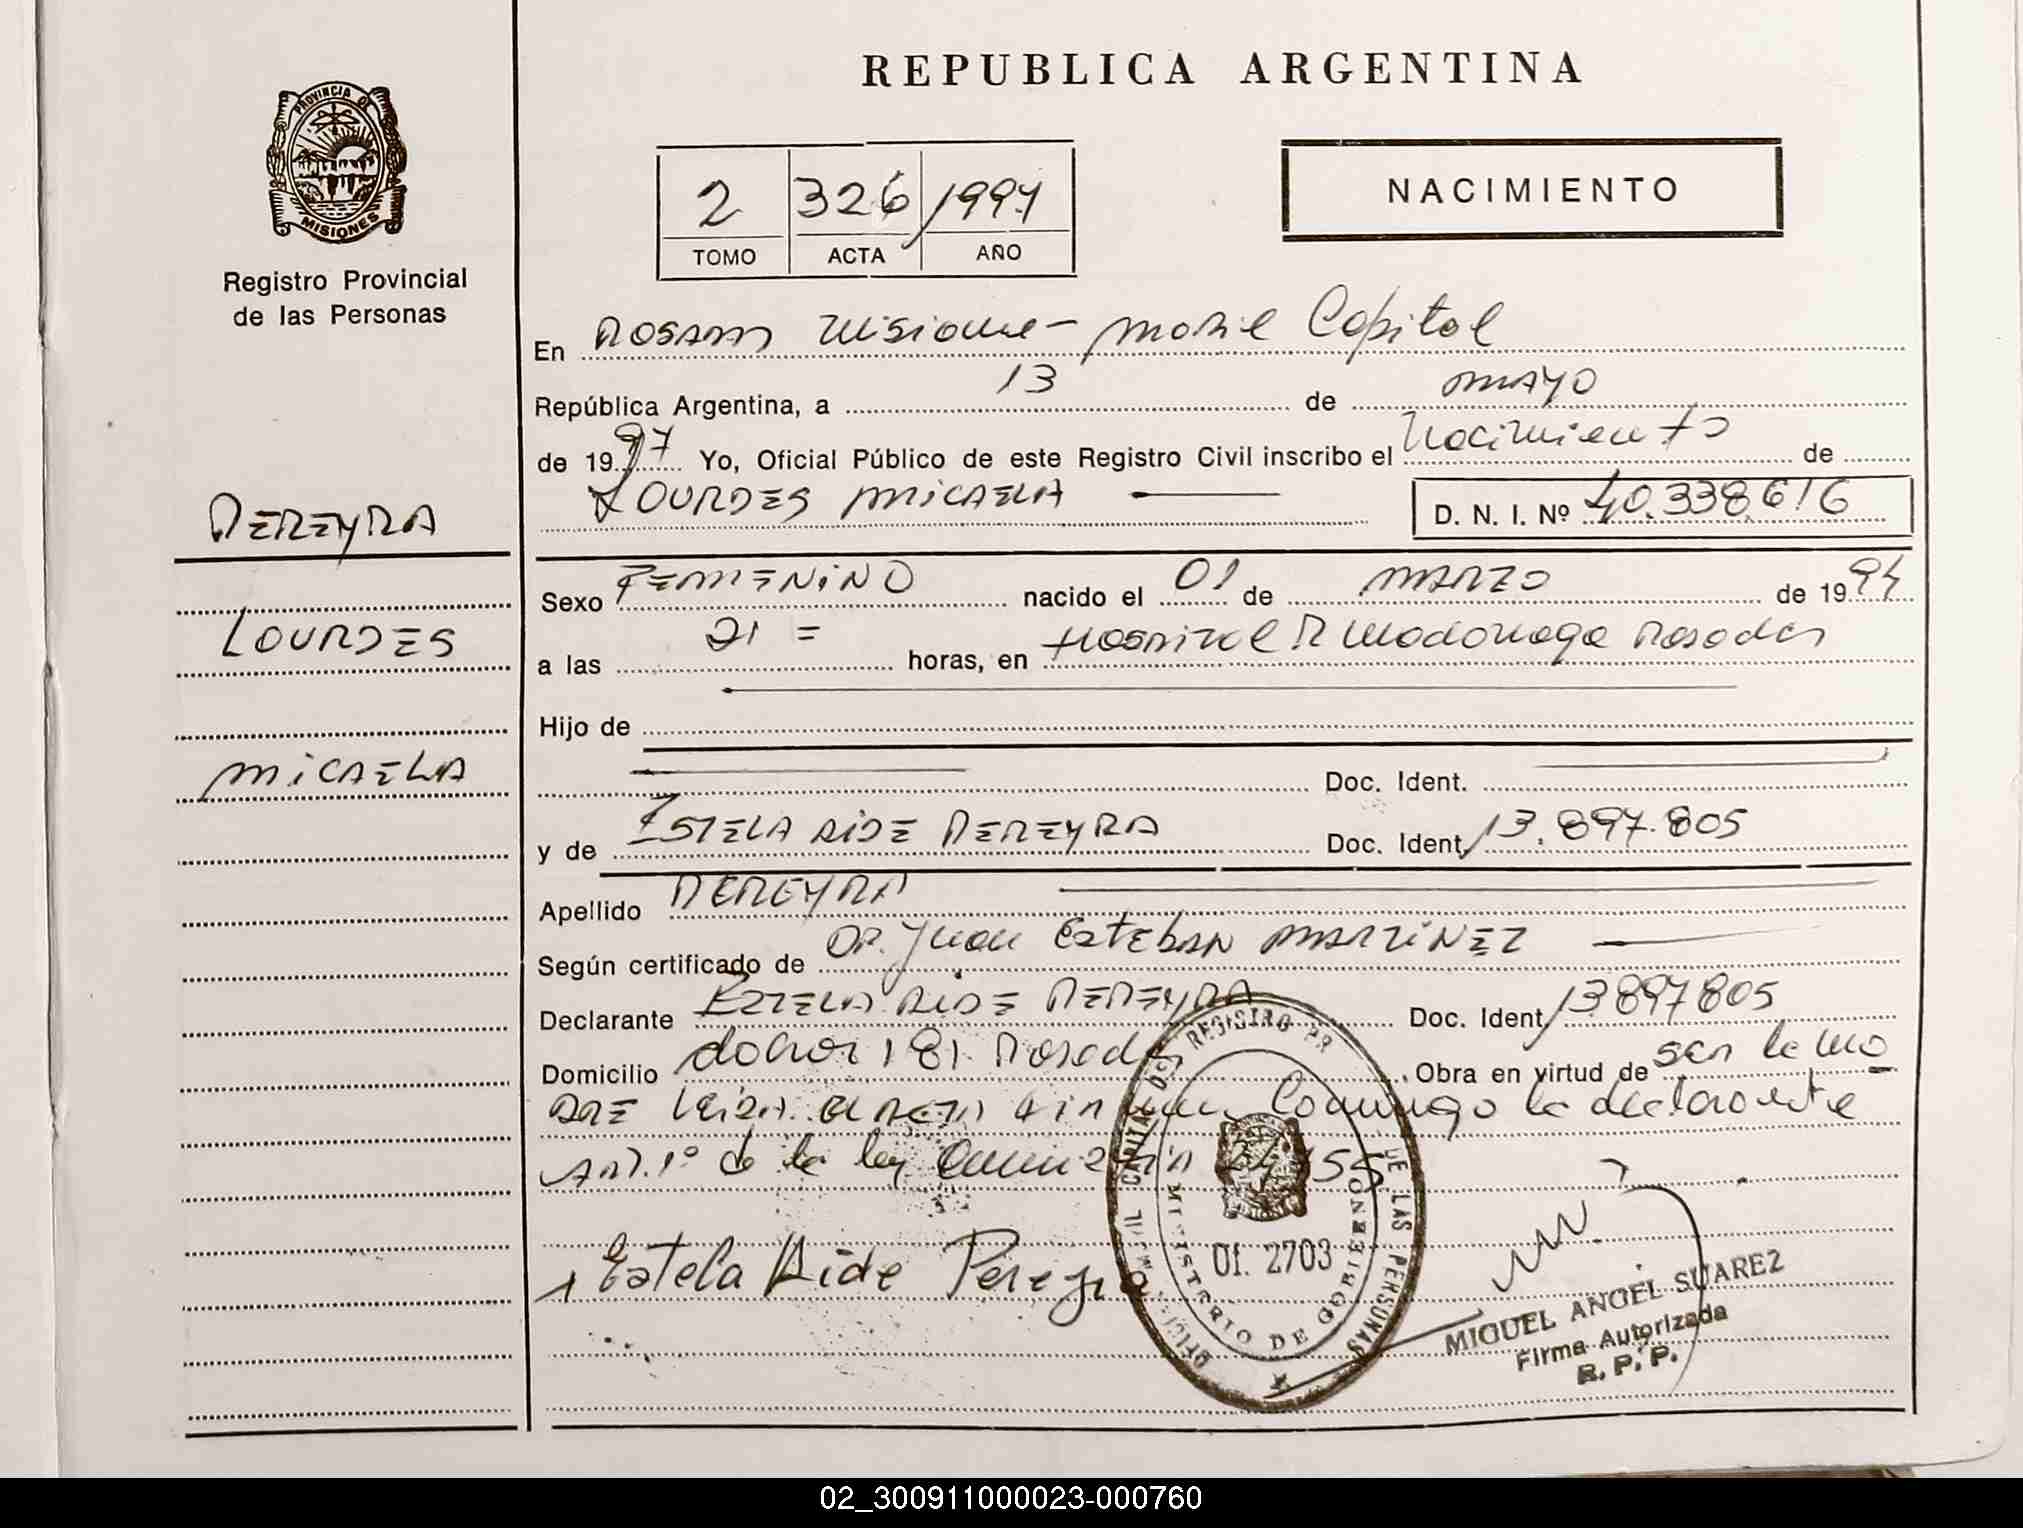 REPUBLICA ARGENTINA
PROVINCIA DE
MISIONES
Registro Provincial
de las Personas
2 326 1997
TOMO ACTA AÑO
NACIMIENTO
En Posadas Misiones - Movil Capital
República Argentina, a 13 de mayo
de 1997 Yo, Oficial Público de este Registro Civil inscribo el Nacimiento de
LOURDES MICAELA D. N. I. Nº 40.338.616
PEREYRA
LOURDES
MICAELA
Sexo FEMENINO nacido el 01 de MARZO de 1994
a las 21 = horas, en Hospital R Madariaga Posadas
Hijo de
Doc. Ident.
y de ESTELA AIDE PEREYRA Doc. Ident. 13.897.805
Apellido PEREYRA
Según certificado de DR. Juan Esteban MARTINEZ
Declarante ESTELA AIDE PEREYRA Doc. Ident. 13897805
Domicilio 181 Posadas Obra en virtud de ser la ma
DRE la declarante
Art. 1º de la ley
Estela Aide Pereyra
REGISTRO PR DE LAS PERSONAS
CAPITAL
MINISTERIO DE GOBIERNO
Of. 2703
MIGUEL ANGEL SUAREZ
Firma Autorizada
R. P. P.
02_300911000023-000760